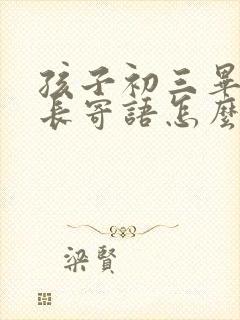 孩子初三畢
長寄語怎麼
梁賢